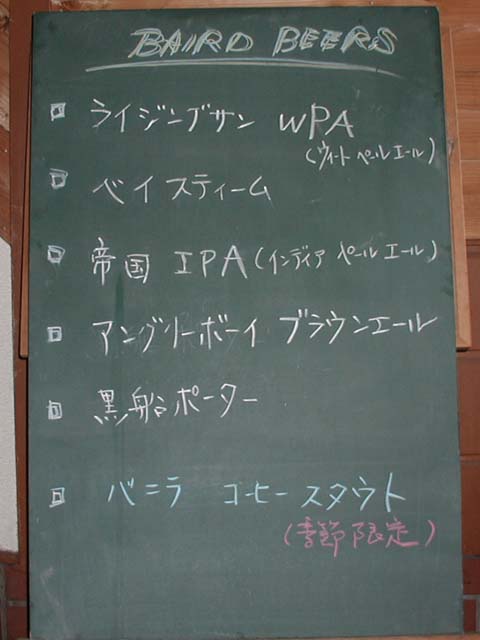 BAIRD BEERS
ライジングサン WPA
(ウィートペールエール)
ベイスティーム
帝国 IPA (インディア ペールエール)
アングリーボーイ ブラウンエール
黒船ポーター
バニラ コーヒースタウト
(季節限定)